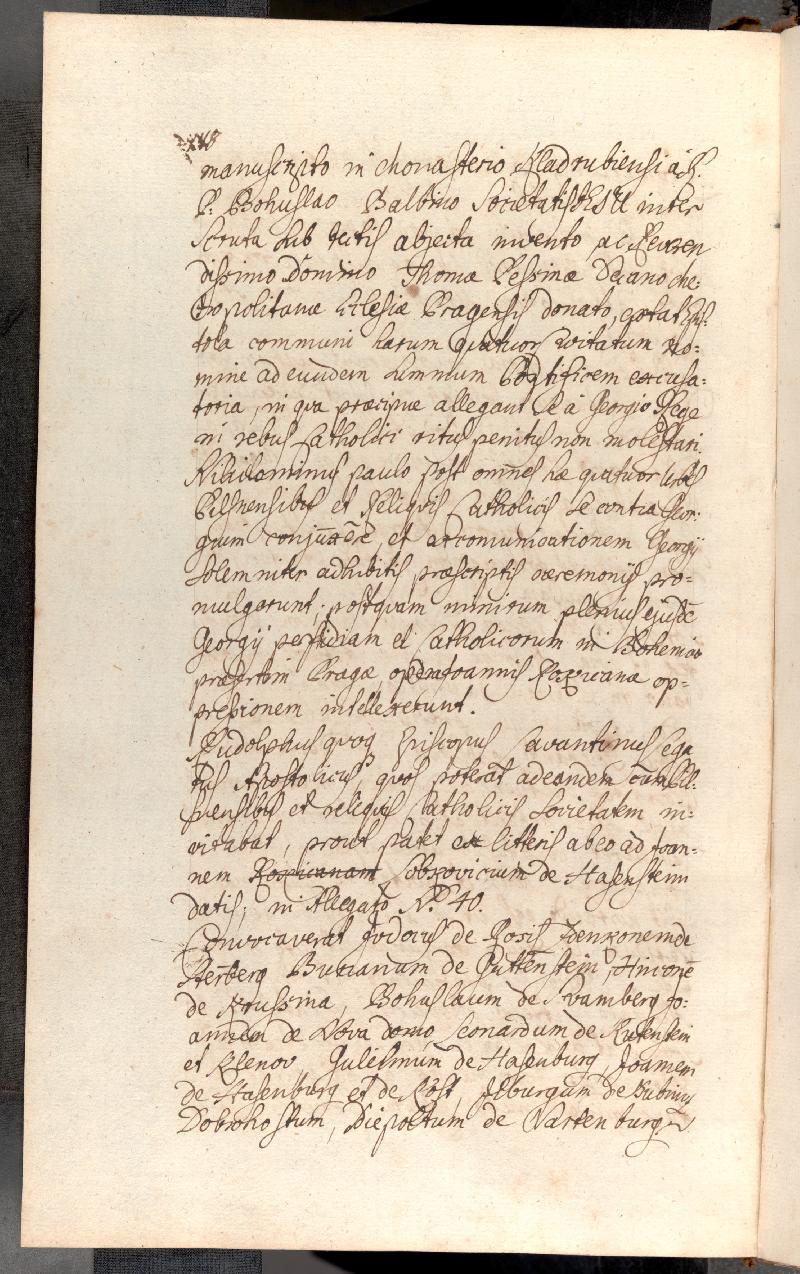 manuscripto in Monasterio Kladrubiensi à R.
P. Bohuslao Balbino Societatis JESU inter
Scruta sub tectis abjecta invento ac Reveren
dissimo Domino Thomæ Pessinæ Decano Me:
tropolitanæ Eclesiæ Pragensis donato, extat Epis:
tola communi harum quatuor civitatum no:
mine ad eundem summum Pontificem excusa:
toria, in qua præcipuè allegant se à Georgio Rege
in rebus Catholici ritus penitus non molestari.
Nihilominus paulo post omnes hæ quatuor Urbes
Pilsnensibus et Reliquis Catholicis se contra Geor:
gium conjunxere, et excomunicationem Georgij
solemniter adhibitis præscriptis cæremonijs pro=
mulgarunt; postquam nimirum plenius ejusdē
Georgij perfidiam et Catholicorum in Bohemia
præsertim Pragæ, opera Joannis Rokicanæ op=
pressionem intellexerunt.
Rudolphus quoq Episcopus Lavantinus Lega
tus Apostolicus, quos poterat ad eandem cum Pil:
snensibus et reliquis Catholicis Societatem in:
vitabat, prout patet ex litteris ab eo ad Joan:
nem Rokicanam Lobkovicium de Hasenstein
datis, in Allegato N.º 40.
Convocaverat Jodocus de Rosis Zdenkonem de
Sterberg Burianum de Guttenstein, Hinconē
de Krussina, Bohuslaum de Svamberg Jo:
annem de Nova domo Leonardum de Gutenstein
et Klenov, Gulielmum de Hasenburg Joannem
de Hasenburg et de Kost, Jburgum de
Dobrohostum, Diepoltum de Vartenburg